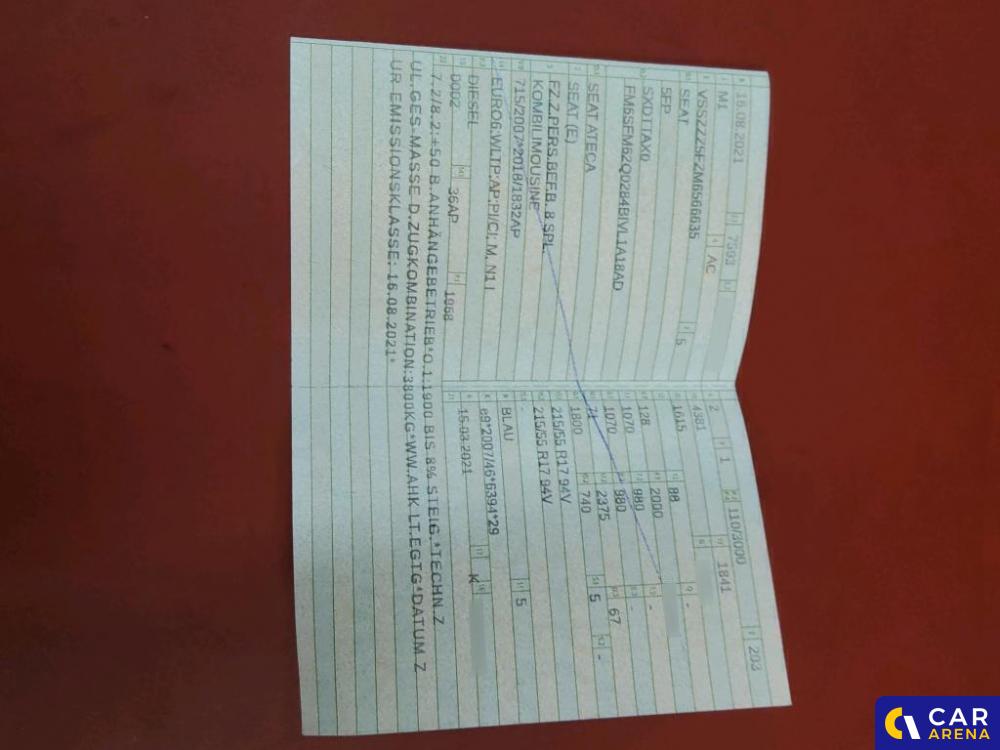 16.08.2021 7593
M1 AC
VSSZZZ5FZM6566635
SEAT 5
5FP
SXDTTAX0
FM6SFM62Q0284BIVL1A18AD
SEAT ATECA
SEAT (E)
FZ.Z.PERS.BEF.B. 8 SPL.
KOMBILIMOUSINE
715/2007*2018/1832AP
EURO6;WLTP;AP;PI/CI; M, N1 I
DIESEL
0002 36AP 1968
2 1 110/3000 203
4381 1841
1615 88 -
128 2000 -
1070 980 -
1070 980 67
71 2375 5 -
1800 740
215/55 R17 94V
215/55 R17 94V
- 5
BLAU
e9*2007/46*6394*29
15.03.2021 K
7.2/8.2:+50 B.ANHÄNGEBETRIEB*O.1:1900 BIS 8% STEIG.*TECHN.Z
UL.GES-MASSE D.ZUGKOMBINATION:3800KG*WW.AHK LT.EGTG*DATUM Z
UR EMISSIONSKLASSE: 16.08.2021*
CAR
ARENA